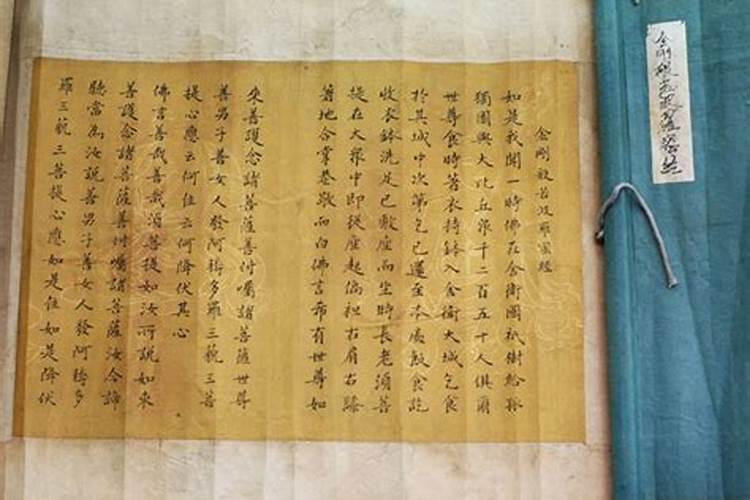 金剛般若波羅蜜經
金剛般若波羅蜜經
如是我聞一時佛在舍衛國祇樹給孤
獨園與大比丘眾千二百五十人俱爾
世尊食時著衣持鉢入舍衛大城乞食
於其城中次第乞已還至本處飯食訖
收衣鉢洗足已敷座而坐時長老須菩
提在大眾中即從座起偏袒右肩右膝
著地合掌恭敬而白佛言希有世尊如
來善護念諸菩薩善付囑諸菩薩世尊
善男子善女人發阿耨多羅三藐三菩
提心應云何住云何降伏其心
佛言善哉善哉須菩提如汝所說如來
善護念諸菩薩善付囑諸菩薩汝今諦
聽當為汝說善男子善女人發阿耨多
羅三藐三菩提心應如是住如是降伏